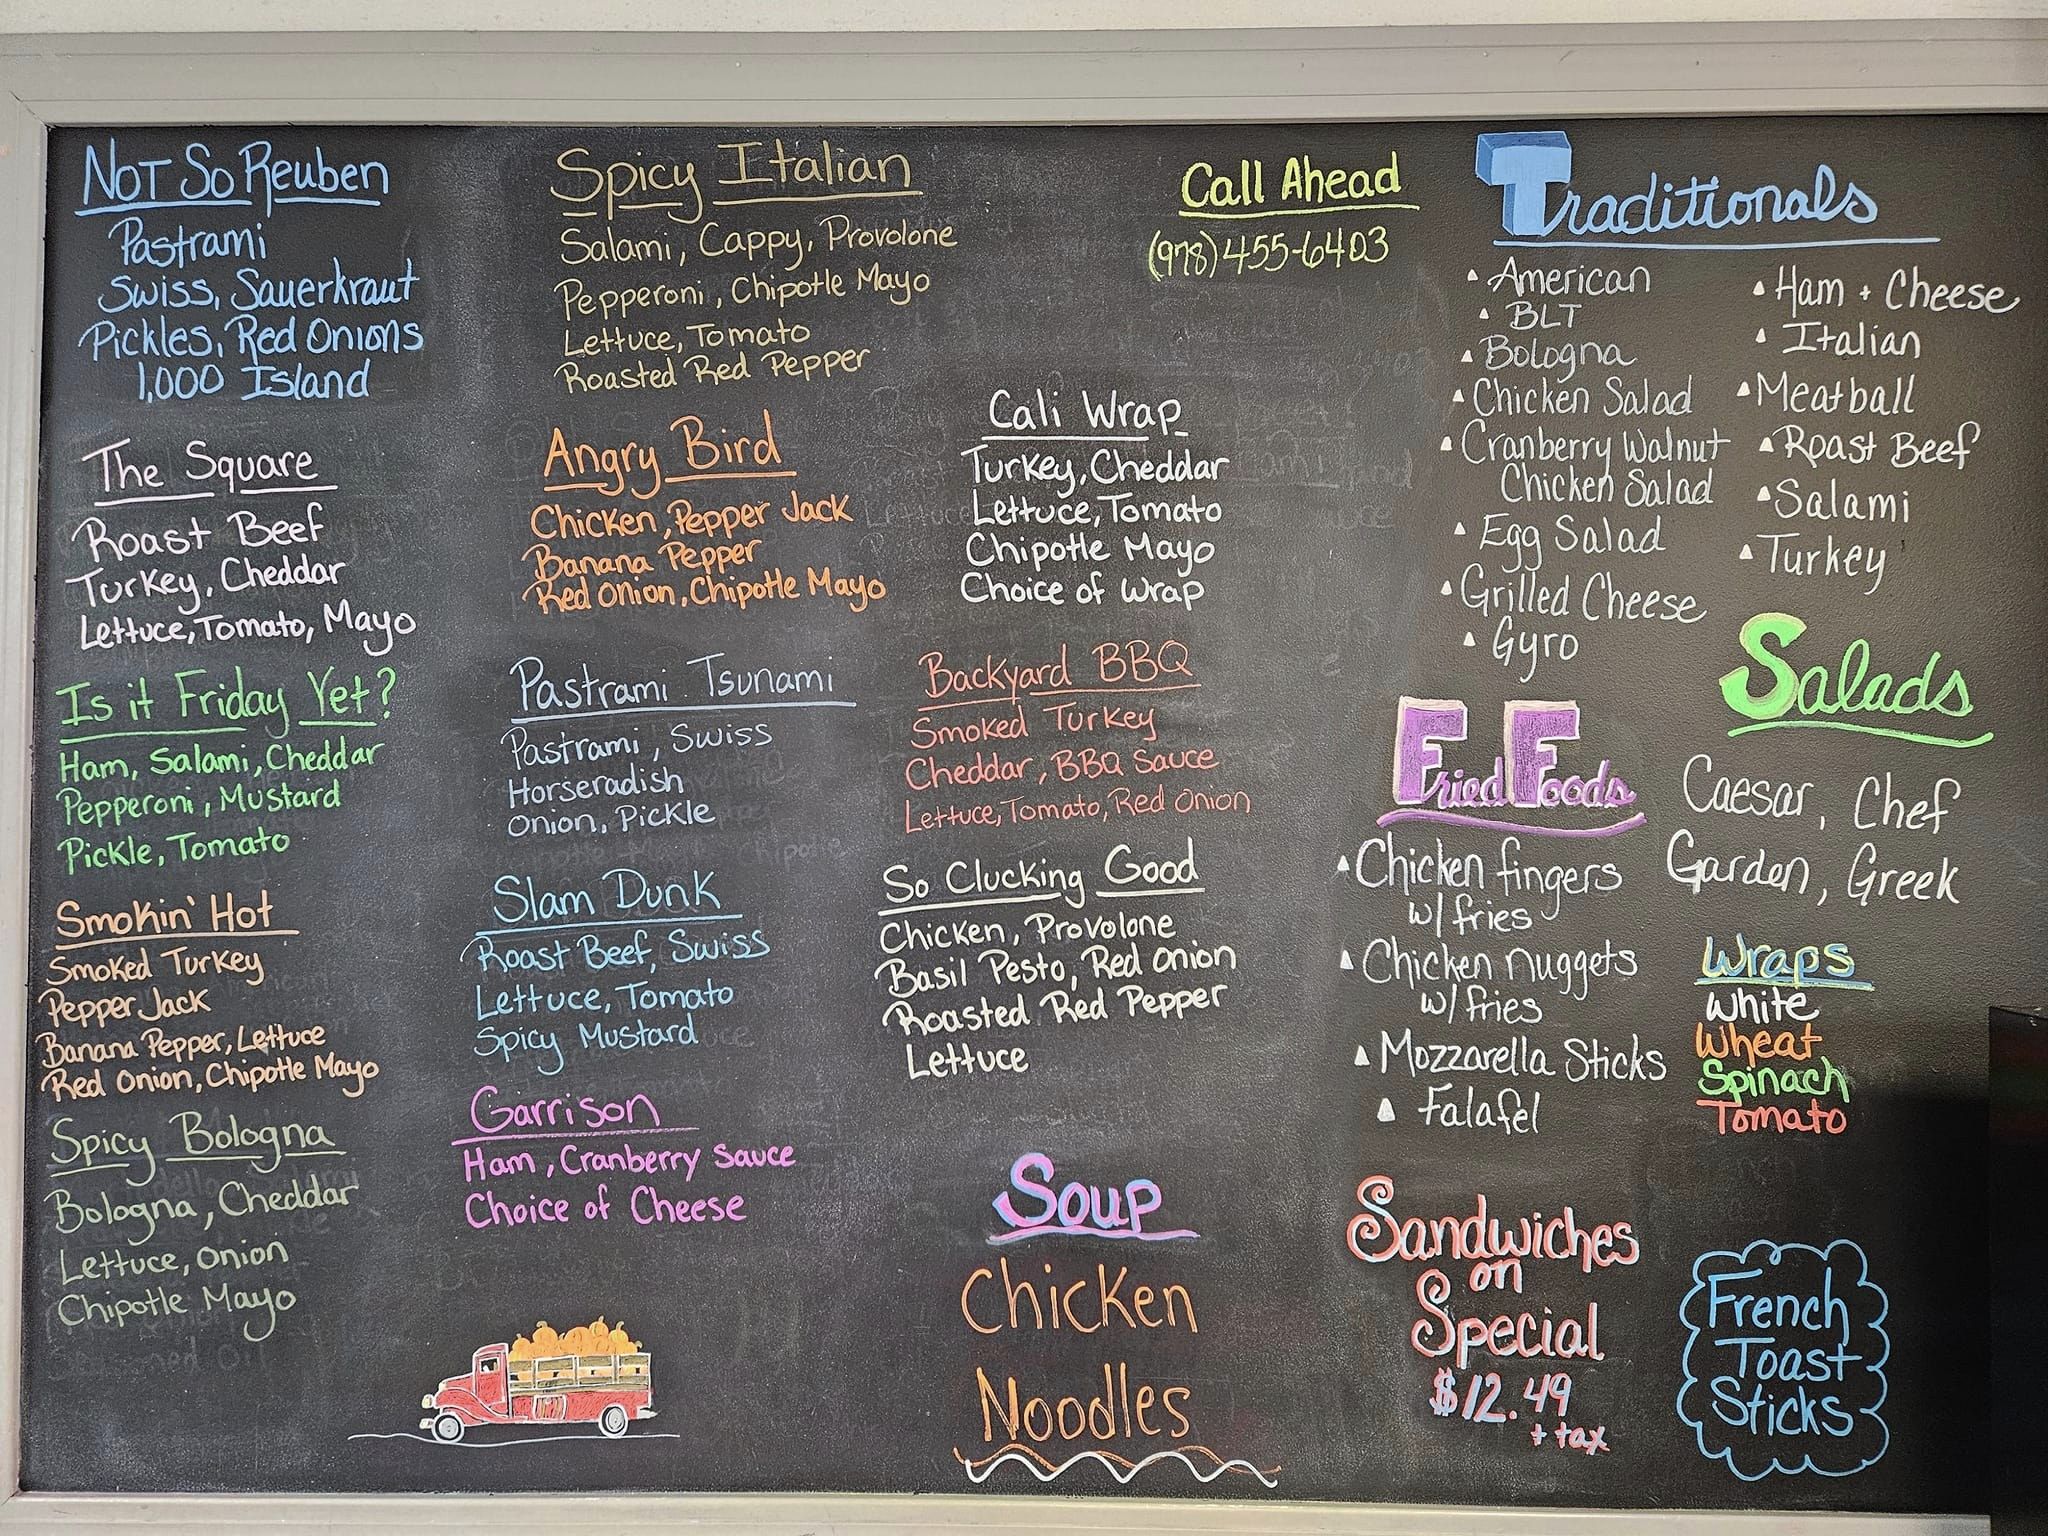 Not So Reuben
Pastrami
Swiss, Sauerkraut
Pickles, Red Onions
1,000 Island
The Square
Roast Beef
Turkey, Cheddar
Lettuce, Tomato, Mayo
Is it Friday Yet?
Ham, Salami, Cheddar
Pepperoni, Mustard
Pickle, Tomato
Smokin' Hot
Smoked Turkey
Pepper Jack
Banana Pepper, Lettuce
Red Onion, Chipotle Mayo
Spicy Bologna
Bologna, Cheddar
Lettuce, Onion
Chipotle Mayo
Spicy Italian
Salami, Cappy, Provolone
Pepperoni, Chipotle Mayo
Lettuce, Tomato
Roasted Red Pepper
Angry Bird
Chicken, Pepper Jack
Banana Pepper
Red Onion, Chipotle Mayo
Pastrami Tsunami
Pastrami, Swiss
Horseradish
Onion, Pickle
Slam Dunk
Roast Beef, Swiss
Lettuce, Tomato
Spicy Mustard
Garrison
Ham, Cranberry Sauce
Choice of Cheese
Call Ahead
(978)455-6403
Cali Wrap
Turkey, Cheddar
Lettuce, Tomato
Chipotle Mayo
Choice of Wrap
Backyard BBQ
Smoked Turkey
Cheddar, BBQ Sauce
Lettuce, Tomato, Red Onion
So Clucking Good
Chicken, Provolone
Basil Pesto, Red Onion
Roasted Red Pepper
Lettuce
Soup
Chicken
Noodles
Traditionals
American
BLT
Bologna
Chicken Salad
Cranberry Walnut
Chicken Salad
Egg Salad
Grilled Cheese
Gyro
Ham + Cheese
Italian
Meatball
Roast Beef
Salami
Turkey
Fried Foods
Chicken fingers
w/ fries
Chicken nuggets
w/ fries
Mozzarella Sticks
Falafel
Salads
Caesar, Chef
Garden, Greek
Wraps
White
Wheat
Spinach
Tomato
Sandwiches
on
Special
$12.49
+ tax
French
Toast
Sticks